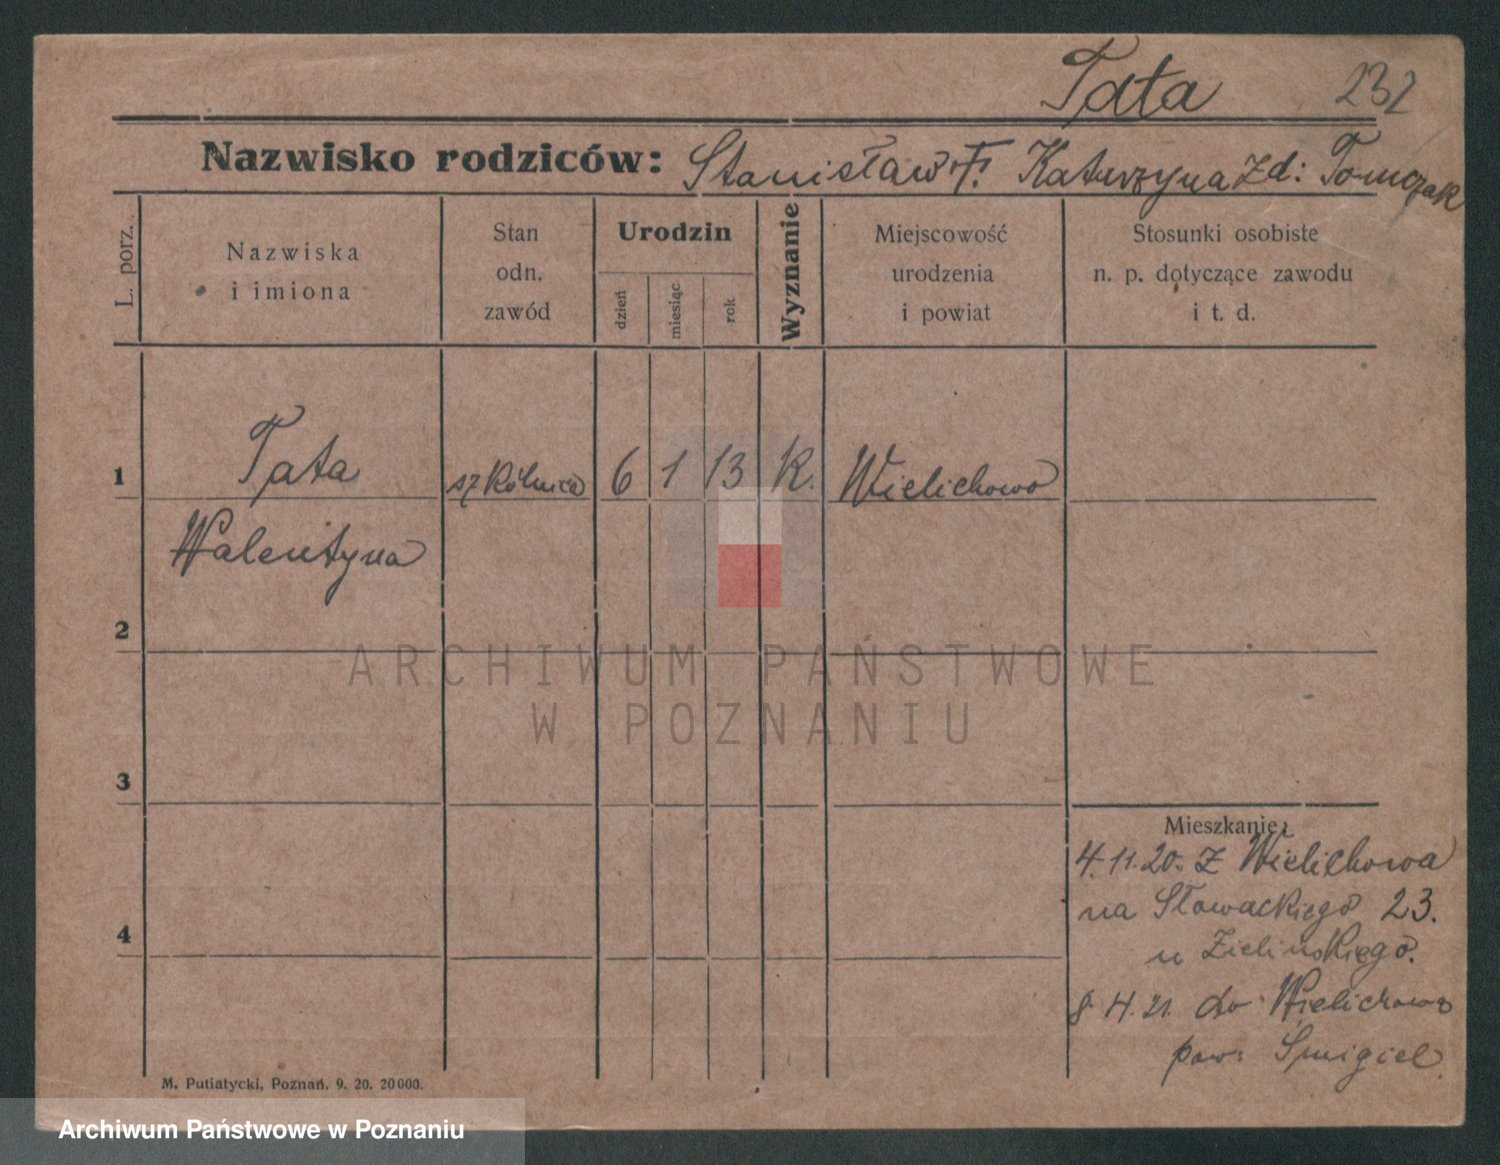 Tata 232
Nazwisko rodziców: Stanisław i Katarzyna zd: Tomczak
L. porz.
Nazwiska
i imiona
Stan
odn.
zawód
Urodzin
dzień
miesiąc
rok
Wyznanie
Miejscowość
urodzenia
i powiat
Stosunki osobiste
n. p. dotyczące zawodu
i t. d.
1 Tata szkólnica 6 1 13 K. Wielichowo
Walentyna
2
3
4
ARCHIWUM PAŃSTWOWE
W POZNANIU
Mieszkanie:
4.11.20. z Wielichowa
na Słowackiego 23.
u Zielińskiego.
8. 4. 21. do Wielichowo
pow: Śmigiel.
M. Putiatycki, Poznań. 9. 20. 20000.
Archiwum Państwowe w Poznaniu